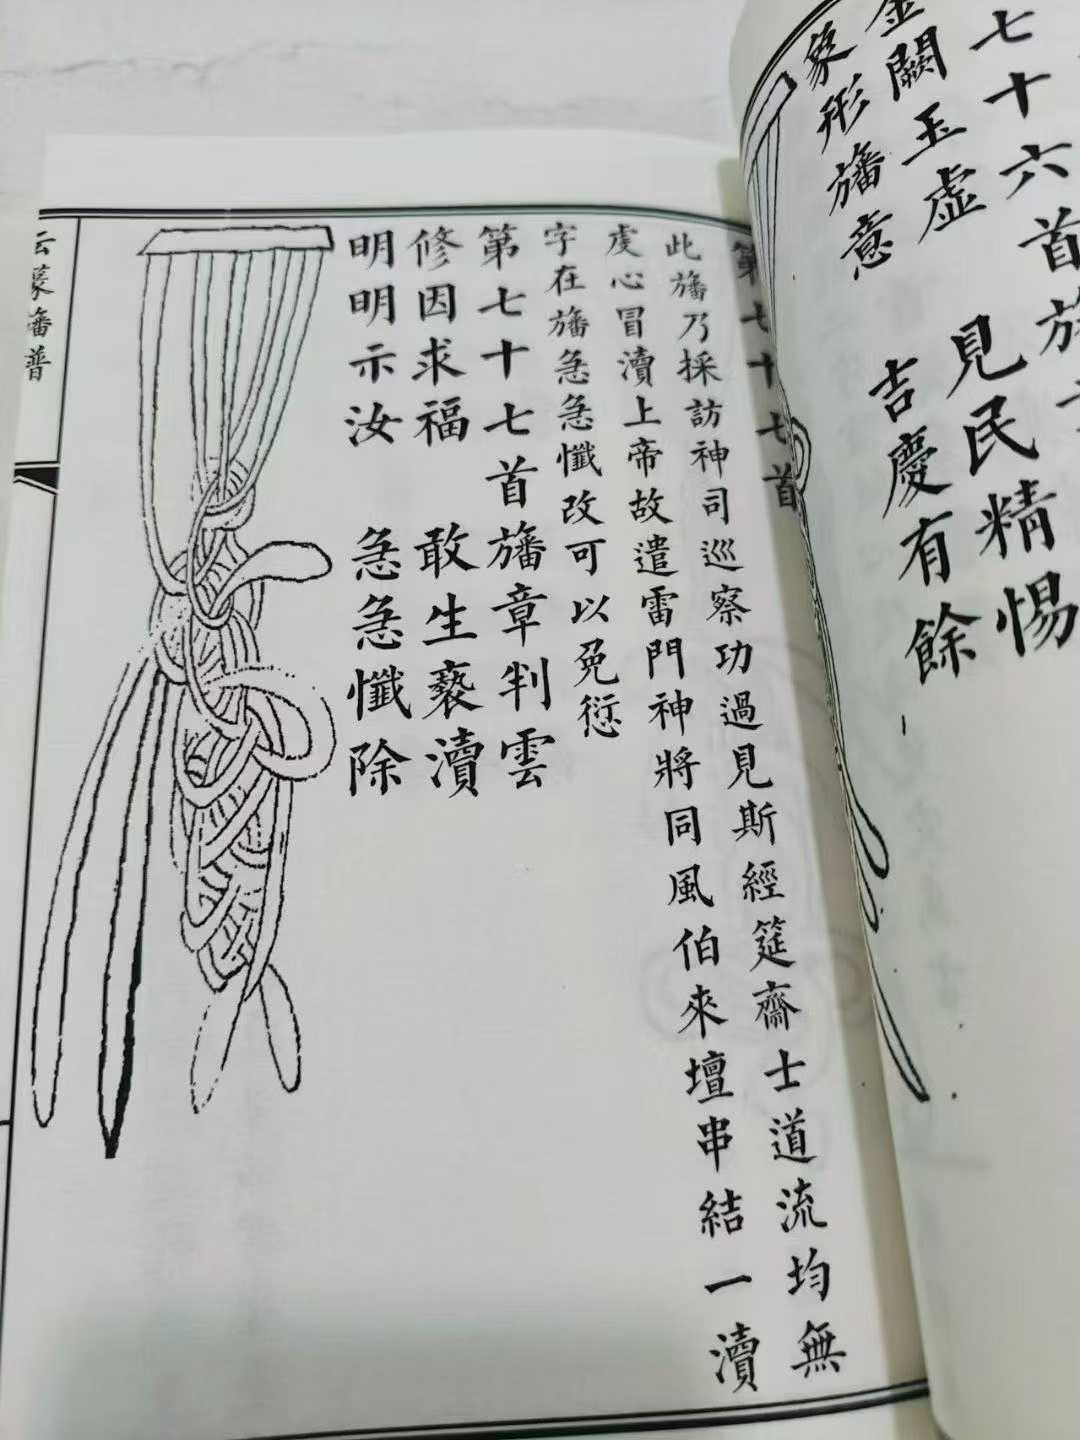 七十六首旛
金闕玉虛 見民精惕
象形旛意 吉慶有餘
第七十七首
此旛乃採訪神司巡察功過見斯經筵齋士道流均無
虔心冒瀆上帝故遣雷門神將同風伯來壇串結一瀆
字在旛急急懺改可以免愆
第七十七首旛章判雲
修因求福 敢生褻瀆
明明示汝 急急懺除
云篆旛普